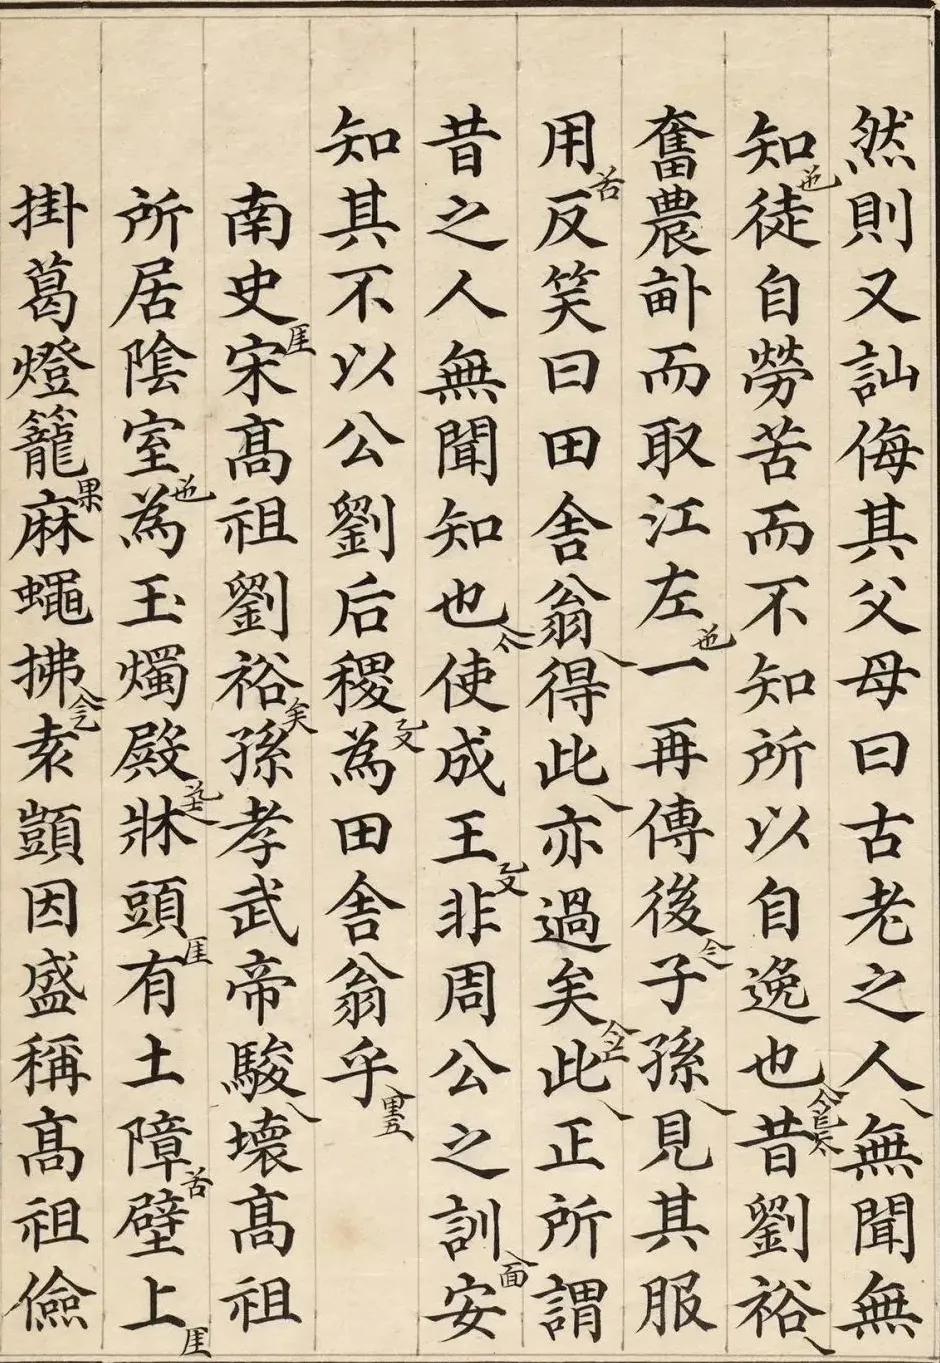 然則又訕侮其父母曰古老之人無聞無
知徒自勞苦而不知所以自逸也昔劉裕
奮農畝而取江左一再傳後子孫見其服
用反笑曰田舎翁得此亦過矣此正所謂
昔之人無聞知也使成王非周公之訓安
知其不以公劉后稷為田舎翁乎
南史宋髙祖劉裕孫孝武帝駿壊髙祖
所居陰室為玉燭殿牀頭有土障壁上
掛葛燈籠麻蠅拂袁顗因盛稱髙祖儉